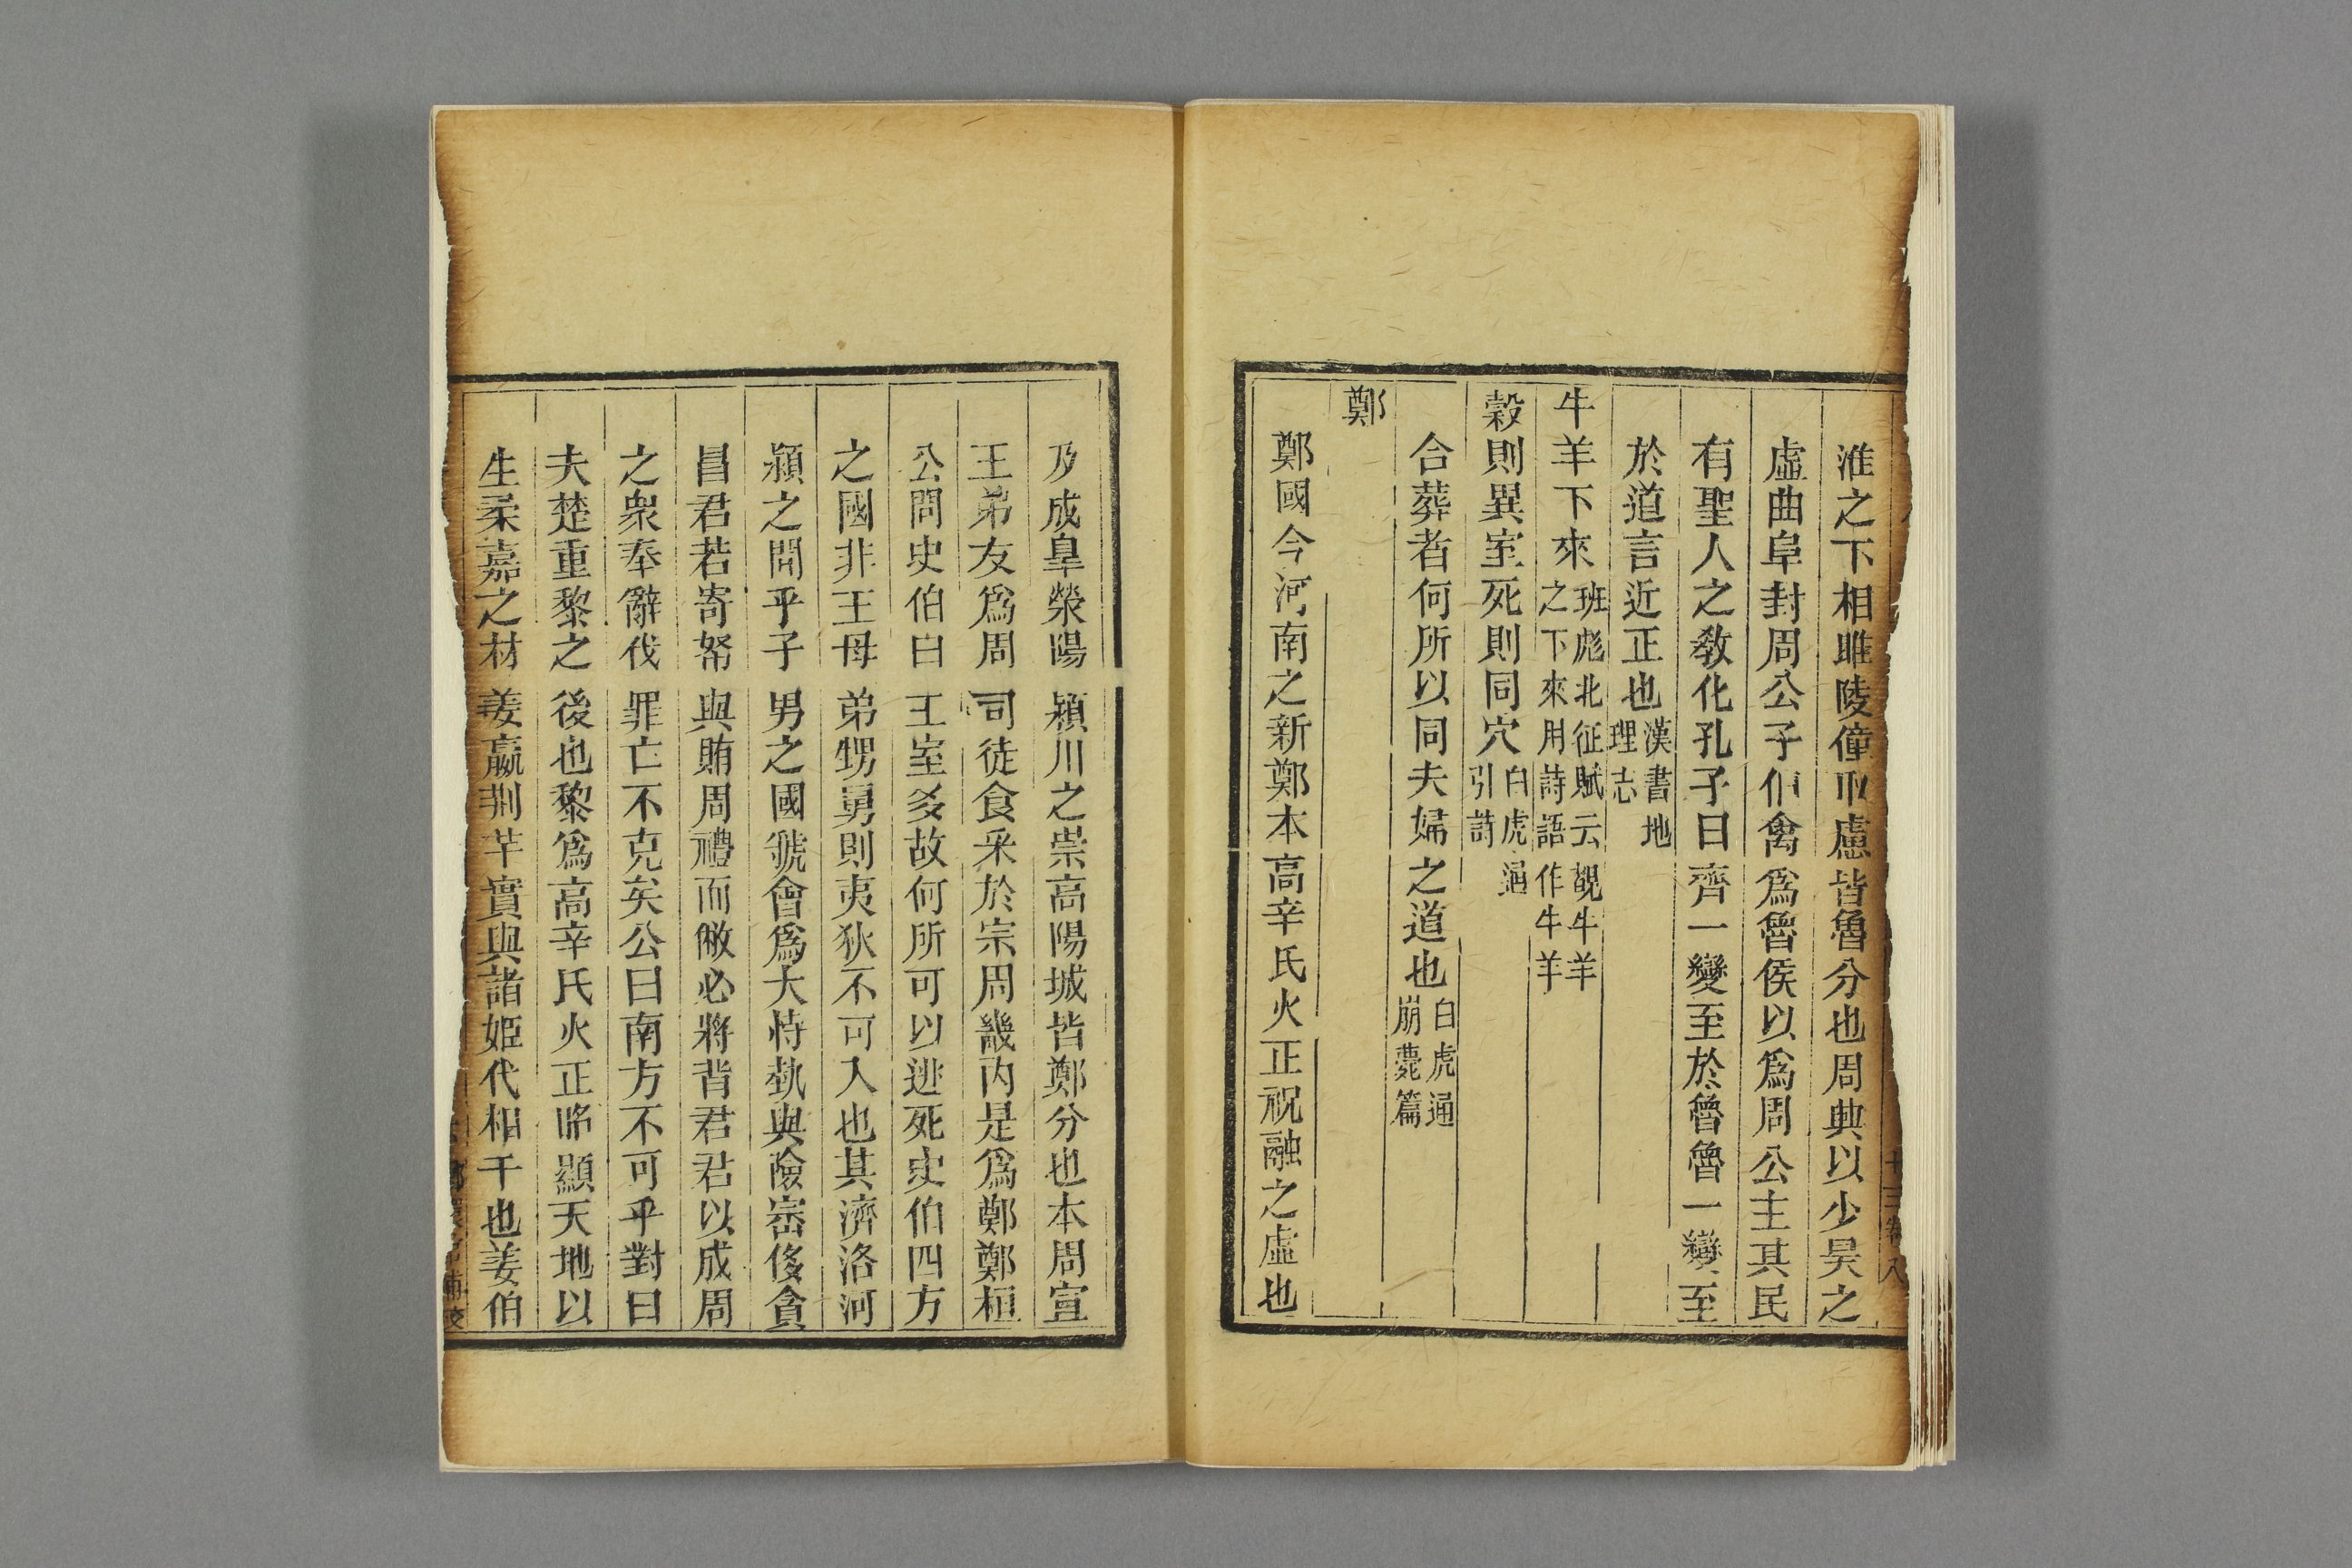 淮之下相雎陵僮取慮皆魯分也周興以少昊之
虛曲阜封周公子伯禽爲魯侯以爲周公主其民
有聖人之敎化孔子曰齊一變至於魯魯一變至
於道言近正也漢書地理志
牛羊下來班彪北征賦云覩牛羊之下來用詩語作牛羊
穀則異室死則同穴白虎通引詩
合葬者何所以同夫婦之道也白虎通崩薨篇
鄭
鄭國今河南之新鄭本高辛氏火正祝融之虛也
及成臯滎陽穎川之崇高陽城皆鄭分也本周宣
王弟友爲周司徒食采於宗周畿内是爲鄭鄭桓
公問史伯曰王室多故何所可以逃死史伯四方
之國非王母弟甥舅則夷狄不可入也其濟洛河
潁之間乎子男之國虢會爲大恃埶與險崈侈貪
昌君若寄帑與賄周禮而敝必將背君君以成周
之衆奉辭伐罪亡不克矣公曰南方不可乎對曰
夫楚重黎之後也黎爲高辛氏火正昭顯天地以
生柔嘉之材姜嬴荆芊實與諸姬代相干也姜伯